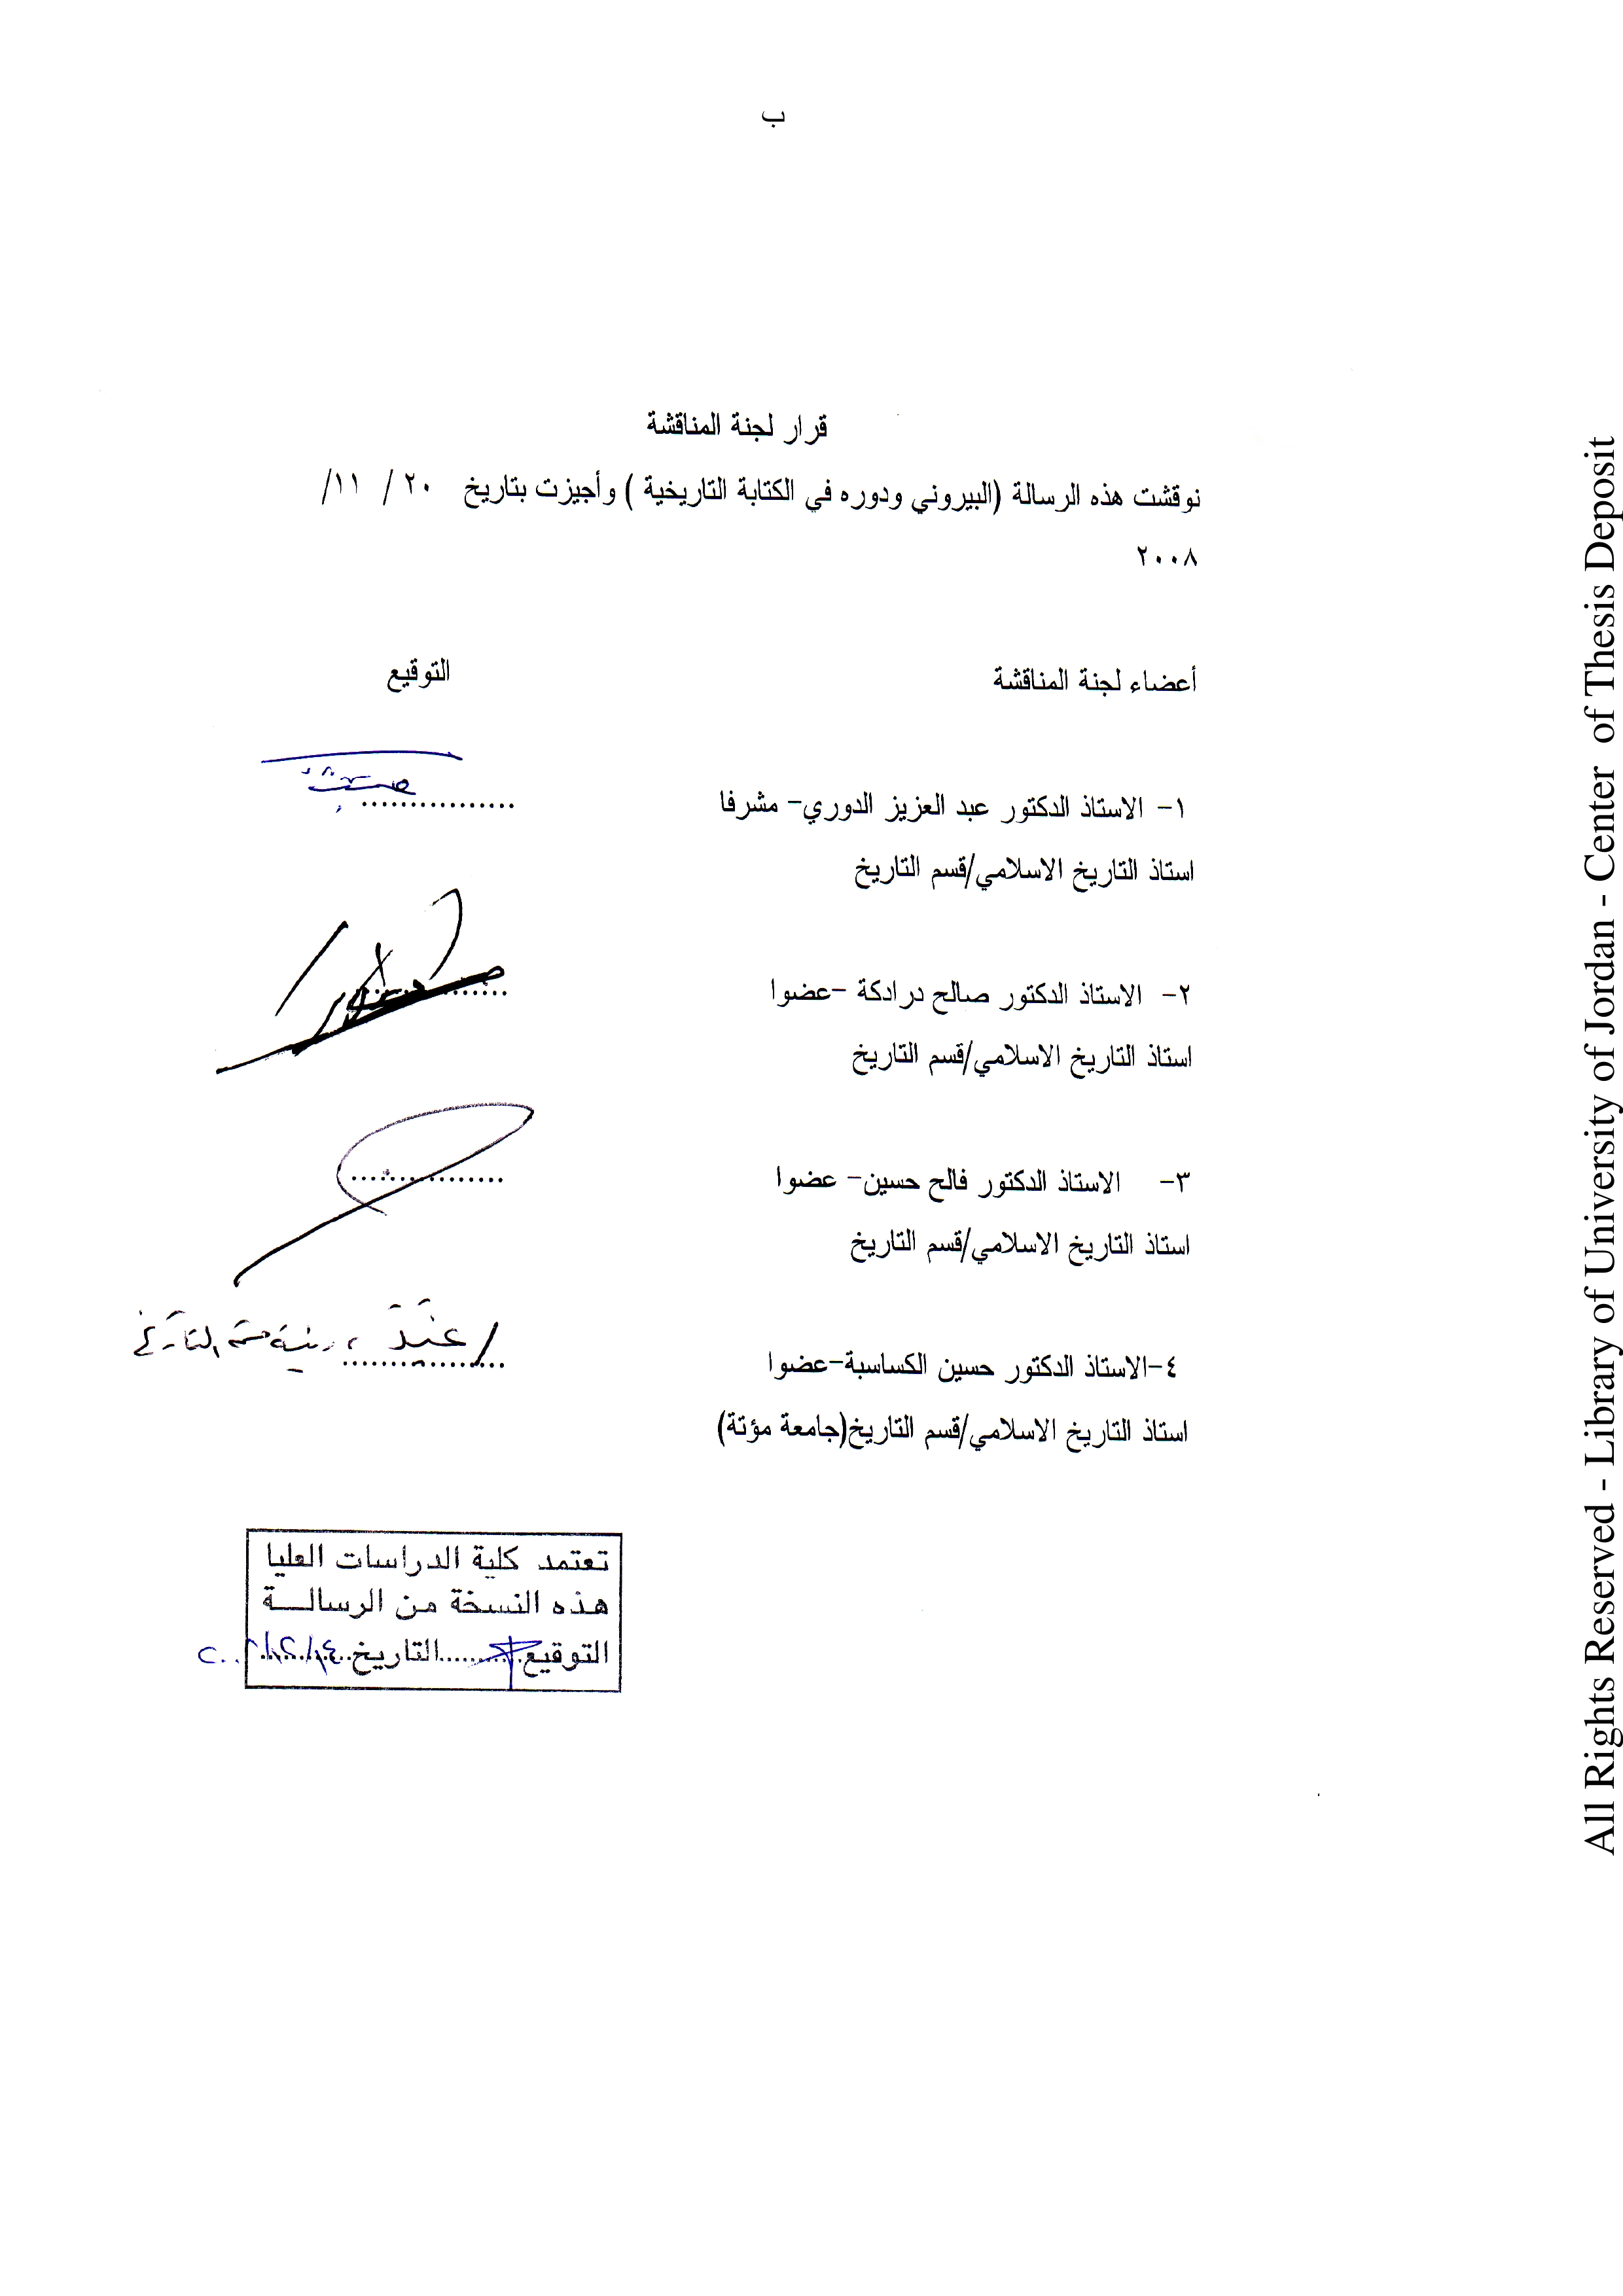 ب
قرار لجنة المناقشة
نوقشت هذه الرسالة (البيروني ودوره في الكتابة التاريخية ) وأجيزت بتاريخ ٢٠ / ١١/
٢٠٠٨
أعضاء لجنة المناقشة التوقيع
١- الاستاذ الدكتور عبد العزيز الدوري- مشرفا ................
استاذ التاريخ الاسلامي/قسم التاريخ
٢- الاستاذ الدكتور صالح درادكة -عضوا ................
استاذ التاريخ الاسلامي/قسم التاريخ
٣- الاستاذ الدكتور فالح حسين- عضوا ................
استاذ التاريخ الاسلامي/قسم التاريخ
٤-الاستاذ الدكتور حسين الكساسبة-عضوا ................
استاذ التاريخ الاسلامي/قسم التاريخ(جامعة مؤتة)
تعتمد كلية الدراسات العليا
هذه النسخة من الرسالــة
التوقيع..........التاريخ..........
All Rights Reserved - Library of University of Jordan - Center of Thesis Deposit